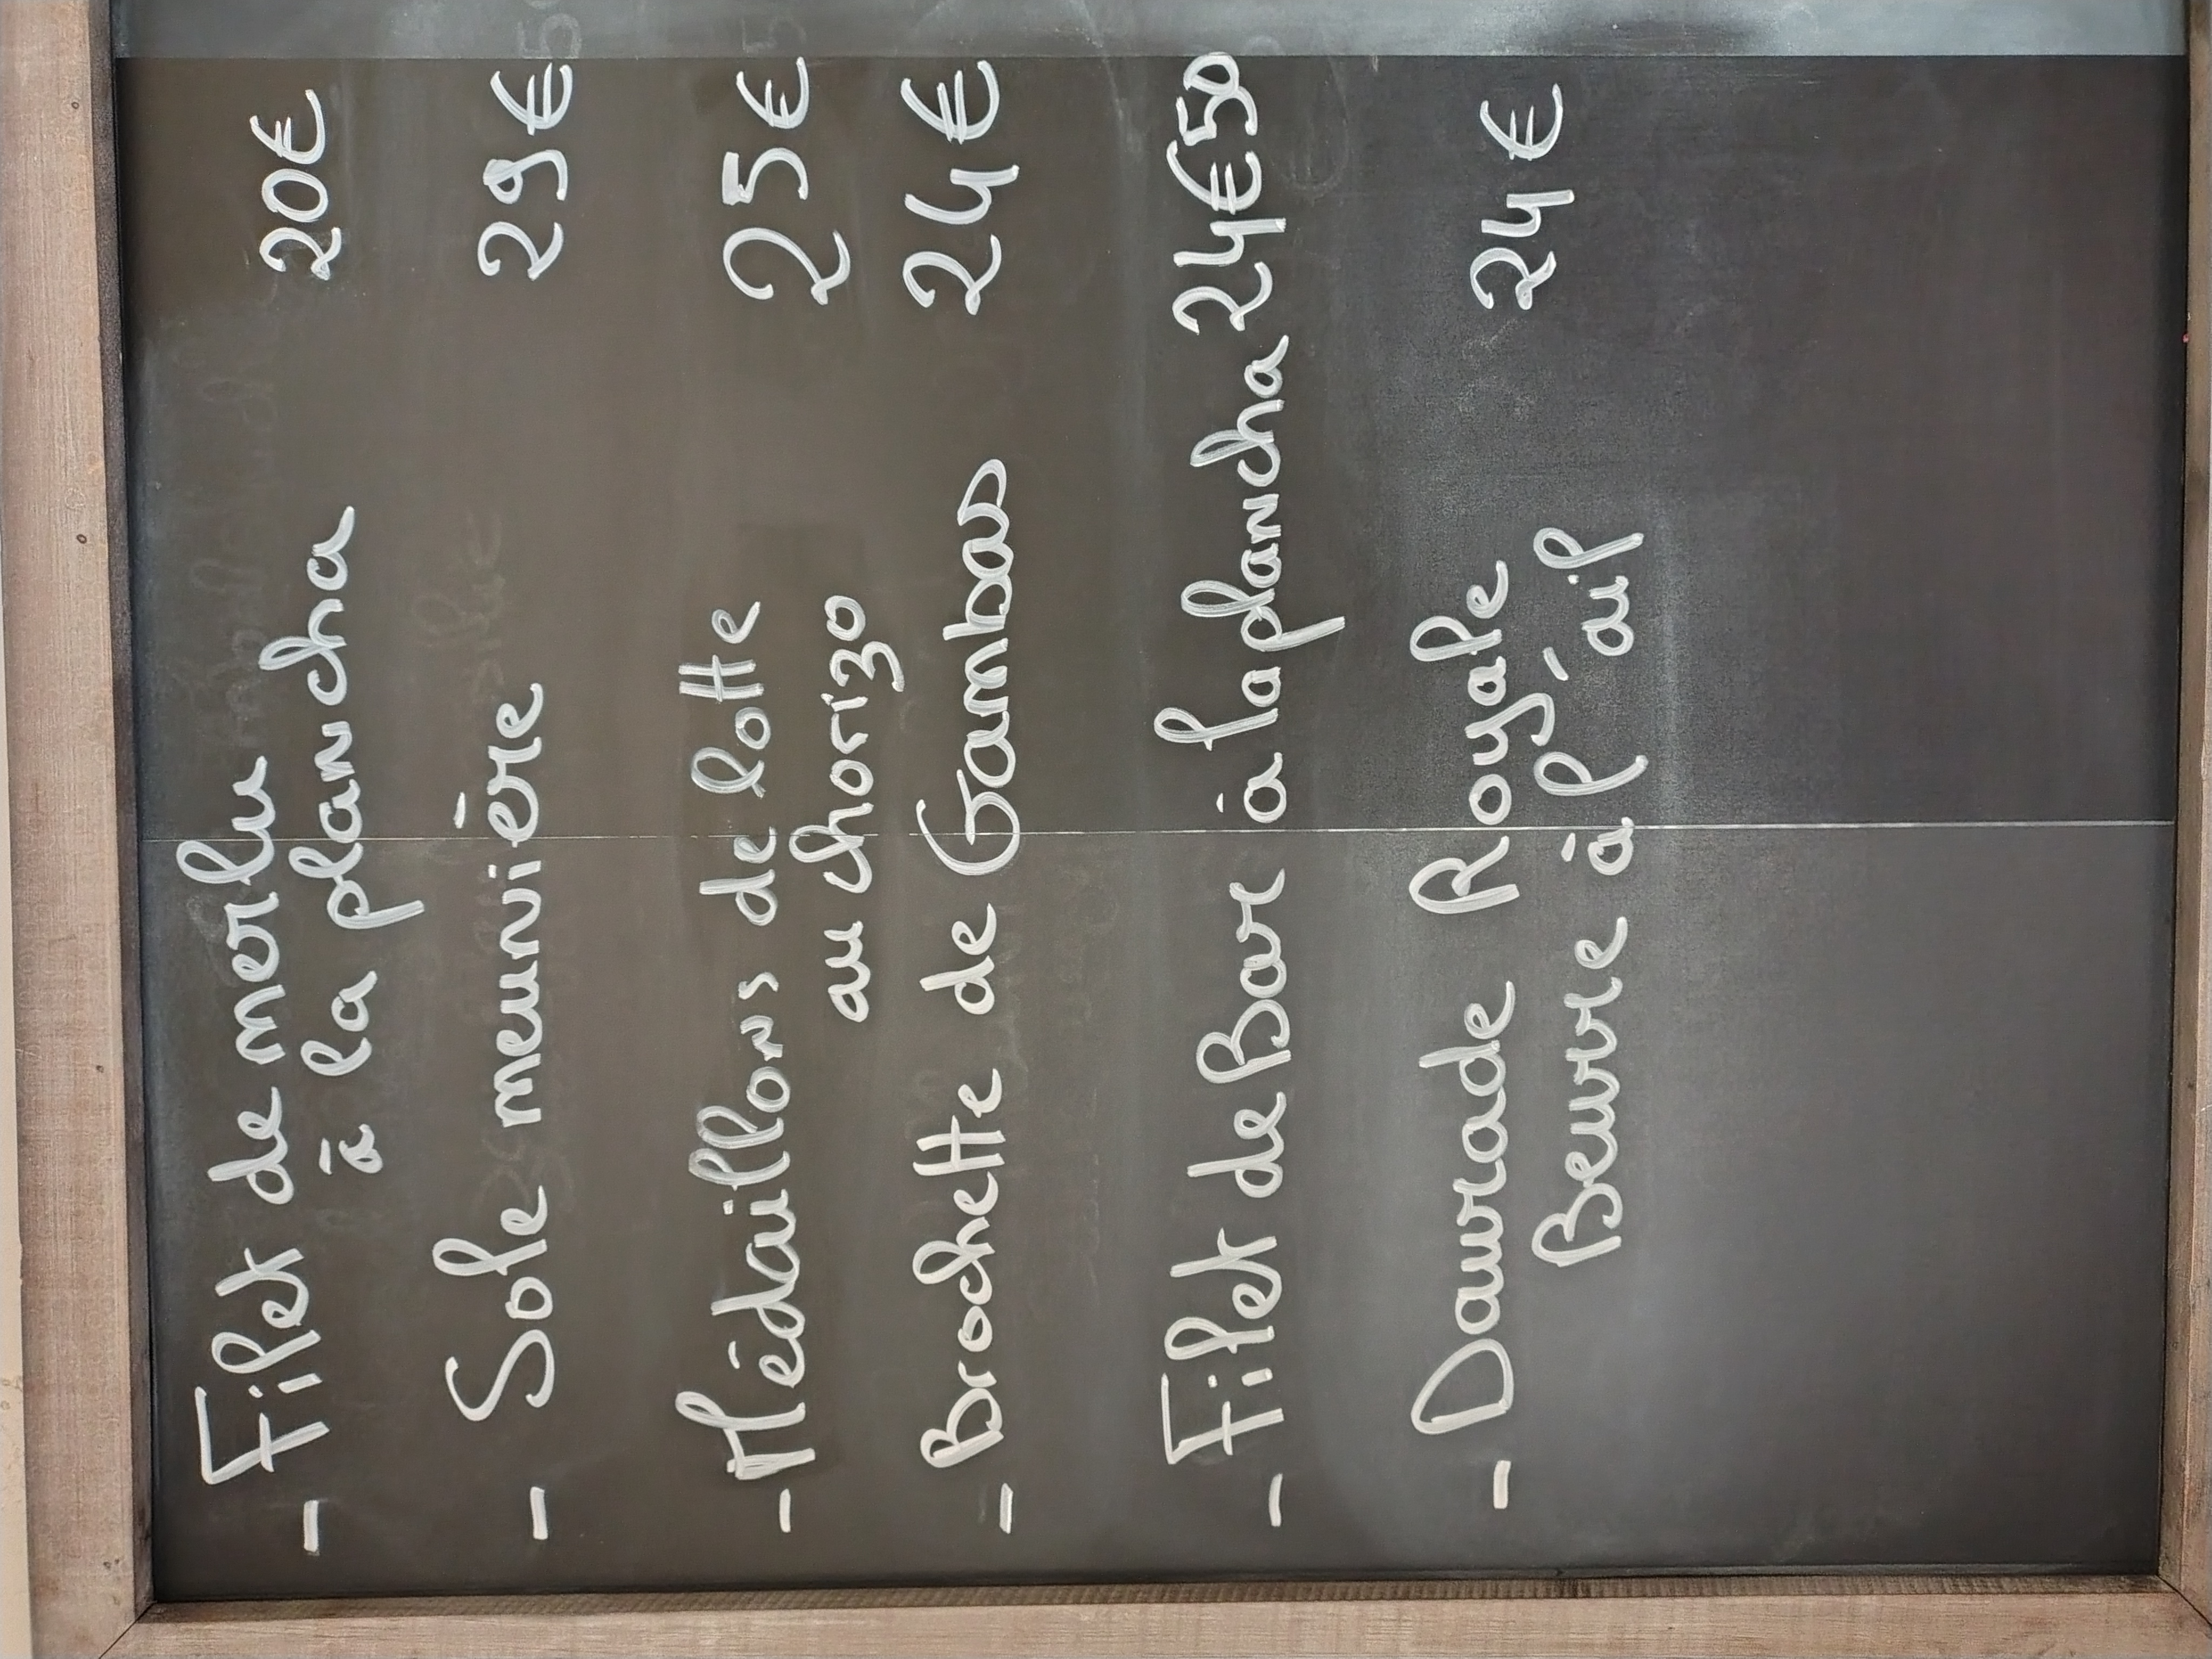 - Filet de merlu 20€
à la plancha
- Sole meunière 29€
- Médaillons de lotte 25€
au chorizo
- Brochette de Gambas 24€
- Filet de Bar à la plancha 24€50
- Daurade Royale 24€
Beurre à l'ail